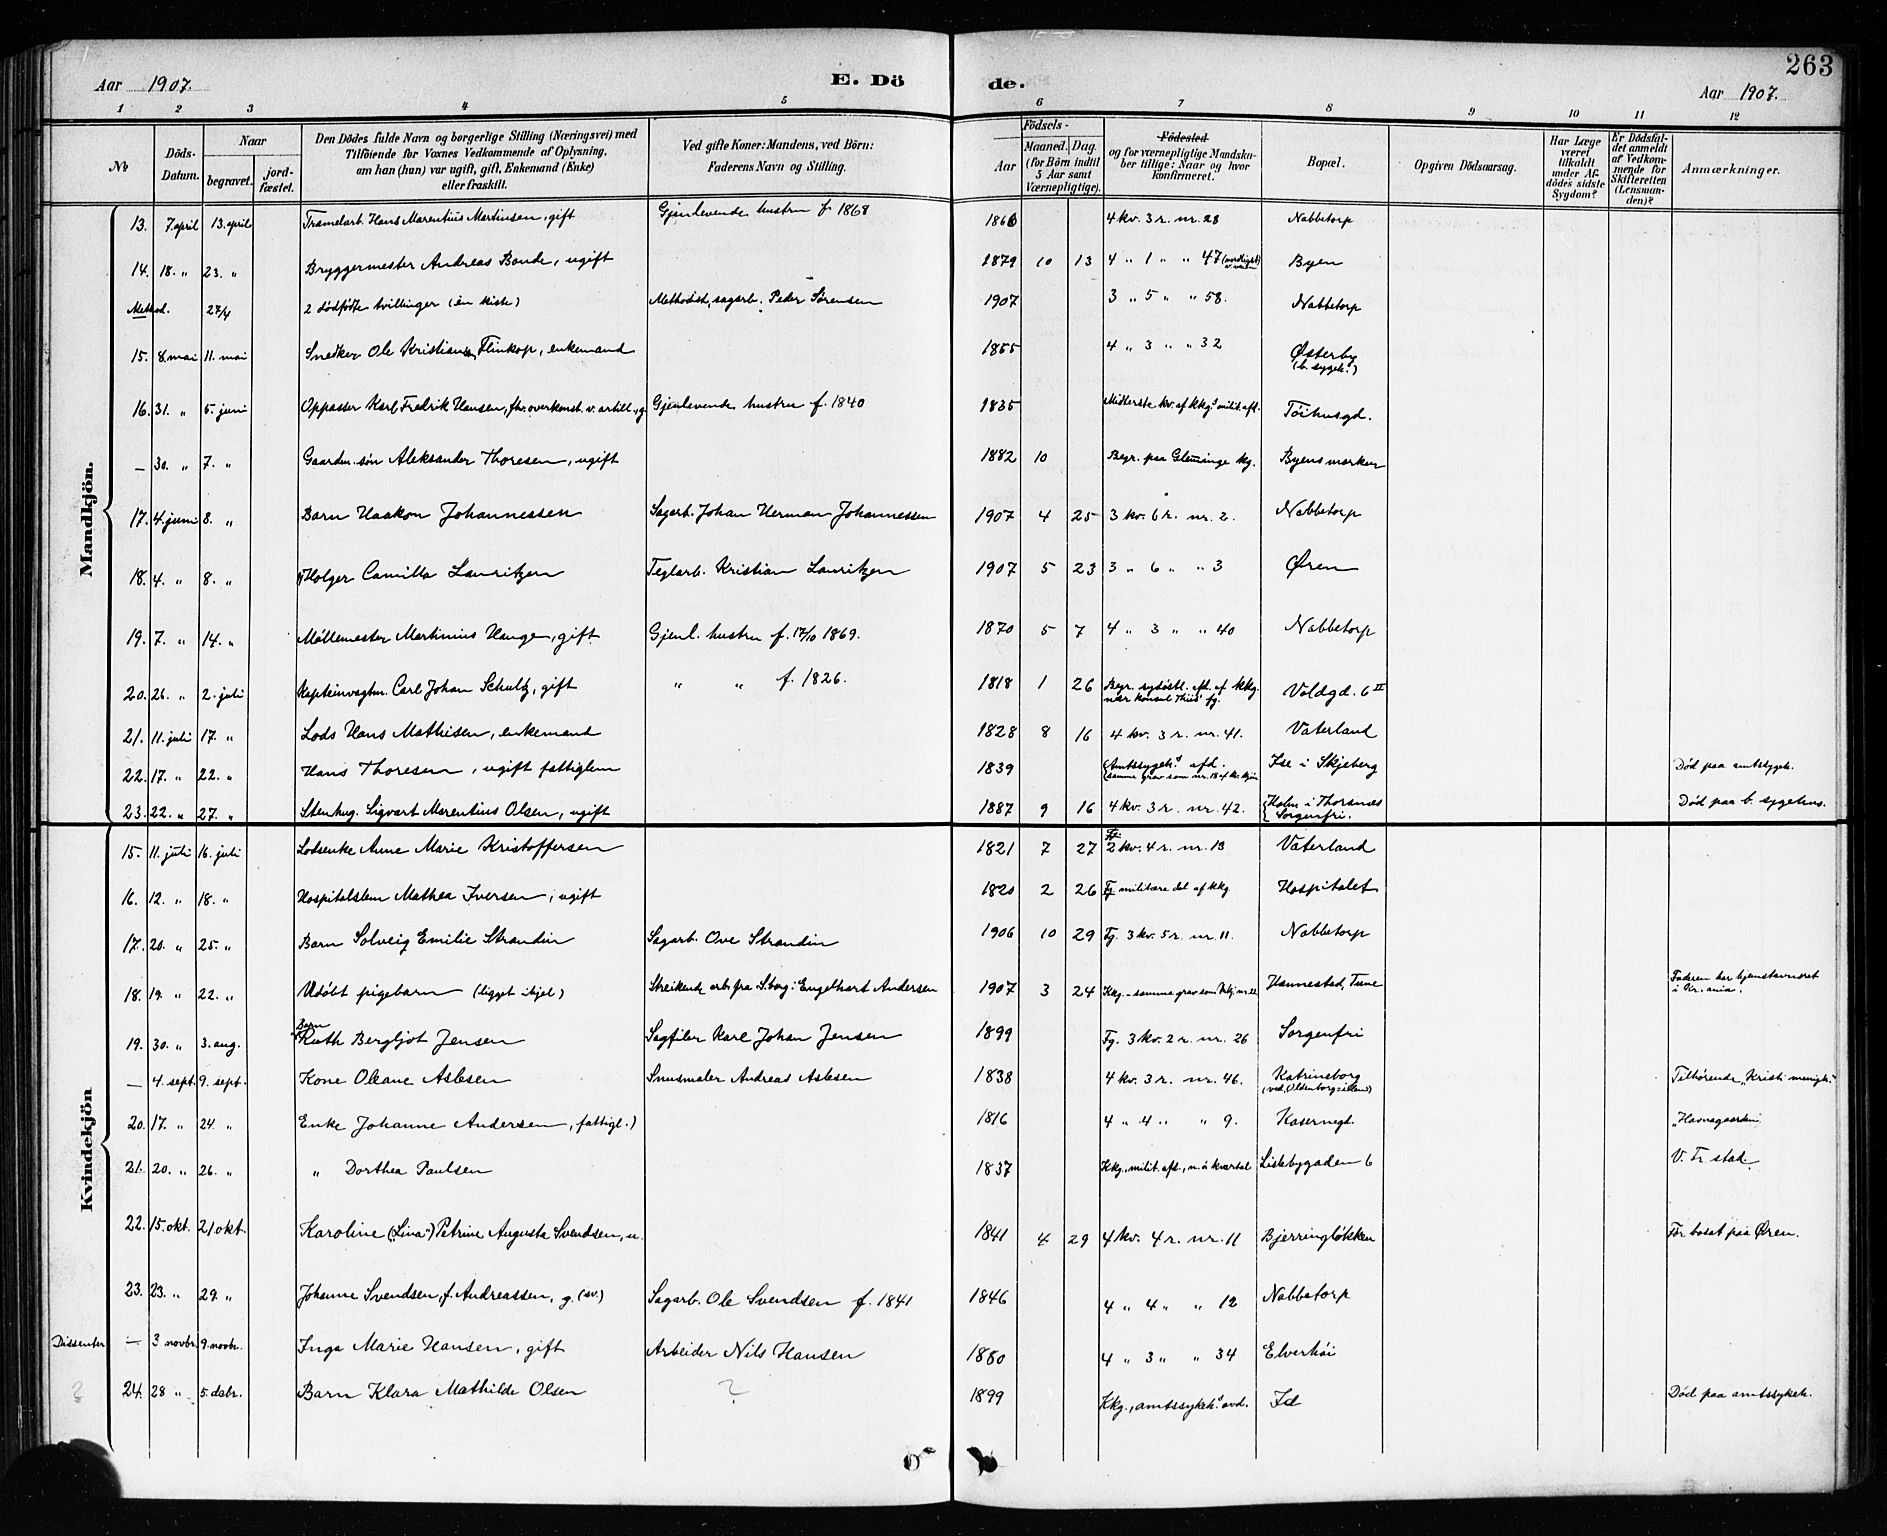 263
Aar 1907.
E. Dö de.
Aar 1907.
1 2 3 4 5 6 7 8 9 10 11 12
No
Döds-Datum.
Naar
begravet.
jord-fæstet.
Den Dödes fulde Navn og borgerlige Stilling (Næringsvei) med
Tilföiende for Voxnes Vedkommende af Oplysning,
om han (hun) var ugift, gift, Enkemand (Enke)
eller fraskilt.
Ved gifte Koner: Mandens, ved Börn:
Faderens Navn og Stilling.
Födsels-
Aar
Maaned. Dag.
(for Börn indtil
5 Aar samt
Værnepligtige).
Födested
og for værnepligtige Mandska-
ber tillige: Naar og hvor
konfirmeret.
Bopæl.
Opgiven Dödsaarsag.
Har Læge
været
tilkaldt
under Af-
dödes sidste
Sygdom?
Er Dödsfal-
det anmeldt
af Vedkom-
mende for
Skifteretten
(Lensman-
den)?
Anmærkninger.
Mandkjön.
13. 7. april 13. april Tramelarb. Hans Marentius Martinsen, gift Gjenlevende hustru f. 1868 1866 4 kv. 3 r. nr. 28 Nabbetorp
14. 18. " 23. " Bryggermester Andreas Bonde, ugift 1879 10 13 4 " 1 " " 47 Byen
Method. 27/4 2 dødfødte tvillinger (én kiste) Methodist, sagarb. Peder Sørensen 1907 3 " 5 " " 58. Nabbetorp
15. 8. mai 11. mai Snedker Ole Kristian Flinkop, enkemand 1855 4 " 3 " " 32 Østerby
(b. sygeh.)
16. 31. " 5. juni Oppasser Karl Fredrik Hansen, fhv. overkonst. v. artill., g. Gjenlevende hustru f. 1840 1835 Midterste kv. af kkg.s milit. afd. Tøihusgd.
— 30. " 7. " Gaardm. søn Aleksander Thoresen, ugift 1882 10 Begr. paa Glemminge kg. Byens marker
17. 4. juni 8. " Barn Haakon Johannessen Sagarb. Johan Herman Johannessen 1907 4 25 3 kv. 6 r. nr. 2. Nabbetorp
18. 4. " 8. " Holger Camillo Lauritzen Teglarb. Kristian Lauritzen 1907 5 23 3 " 6 " " 3 Øren
19. 7. " 14. " Møllemester Martinius Hauge, gift Gjenl. hustru f. 17/10 1869. 1870 5 7 4 " 3 " " 40 Nabbetorp
20. 26. " 2. juli Kapteinvagtm. Carl Johan Schultz, gift " " f. 1826. 1818 1 26 Begr. sydøstl. afd. af kkg.
nær konsul Thiis' fg. Voldgd. 6 II
21. 11. juli 17. " Lods Hans Mathisen, enkemand 1828 8 16 4 kv. 3 r. nr. 41. Vaterland
22. 17. " 22. " Hans Thoresen, ugift fattiglem 1839 Amtssygeh.s afd.
(samme grav som nr. 18 af kv. kjøn Ise i Skjeberg Død paa amtssygeh.
23. 22. " 27. " Stenhug. Sigvart Marentius Olsen, ugift 1887 9 16 4 kv. 3 r. nr. 42. Holm i Thorsnæs
Sorgenfri. Død paa b. sygehus.
Kvindekjön
15. 11. juli 16. juli Lodsenke Anne Marie Kristoffersen 1821 7 27 Fg. 2 kv. 4 r. nr. 13 Vaterland
16. 12. " 18. " Hospitalslem Mathea Iversen, ugift 1820 2 26 Fg militære del af kkg Hospitalet
17. 20. " 25. " Barn Solveig Emilie Strandin Sagarb. Ove Strandin 1906 10 29 Fg. 3 kv. 5 r. nr. 11. Nabbetorp
18. 19. " 22. " Udøbt pigebarn (ligget ihjel) Streikende arb. fra S.borg: Engelhart Andersen 1907 3 24 Kkg. – samme grav som Mkj. nr. 22 Hannestad, Tune Faderen har hjemstavnsret
i Kr.ania.
19. 30. " 3. aug. Barn Ruth Bergljot Jensen Sagfiler Karl Johan Jensen 1899 Fg. 3 kv. 2 r. nr. 26 Sorgenfri
— 4. sept. 9. sept. Kone Oleane Aslesen Snusmaler Andreas Aslesen 1838 4 kv. 3 r. nr. 46. Katrineborg
(ved Oldenborg-) Tilhørende "Kristi menigh."
20. 17. " 24. " Enke Johanne Andersen, fattigl.) 1816 4 " 4 " " 9. Kasernegd. "Havnegaarden"
21. 20. " 26. " " Dorthea Paulsen 1837 Kkg., milit. afd., n. ø. kvartal Lislebygaden 6 V. Fr.stad.
22. 15. okt. 21. okt. Karoline ("Lina") Petrine Augusta Svendsen, u. 1841 4 29 4 kv. 4 r. nr. 11 Bjerringløkken Før bosat paa Øren.
23. 23. " 29. " Johanne Svendsen, f. Andreassen, g. (sv.) Sagarb. Ole Svendsen f. 1841 1846 4 " 4 " " 12 Nabbetorp
Dissenter — 3 novbr. 9. novbr. Inga Marie Hansen, gift Arbeider Nils Hansen 1880 4 " 3 " " 34 Elverhøi
? 24. 28 " 5. debr. Barn Klara Mathilde Olsen ? 1899 Kkg., amtssykeh.s avd. Id Død paa amtssykeh.